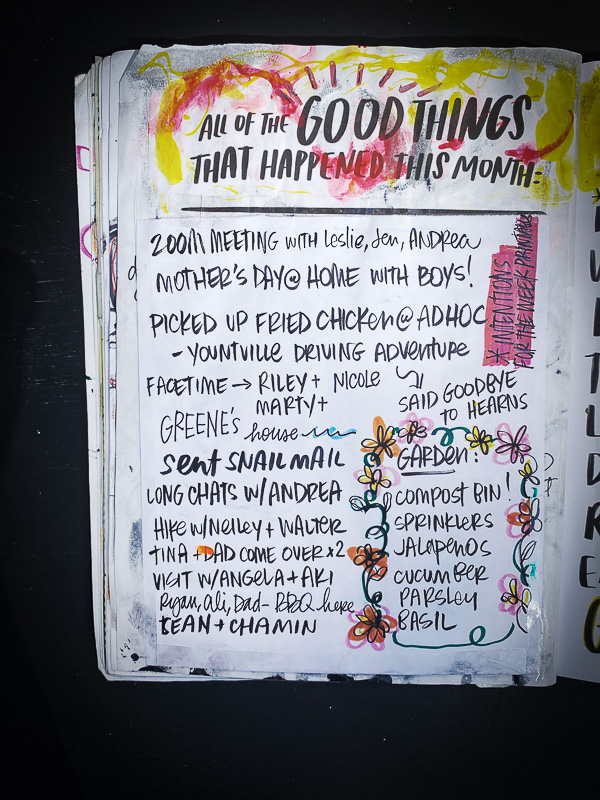 ALL OF THE GOOD THINGS
THAT HAPPENED THIS MONTH:
ZOOM MEETING WITH Leslie, Jen, ANDREA
MOTHER'S DAY @ HOME WITH BOYS!
PICKED UP FRIED CHICKEN @ ADHOC
- YOUNTVILLE DRIVING ADVENTURE
* INTENTIONS
FOR THE WEEK PAINTINGS
FACETIME → RILEY + NICOLE
MARTY +
SAID GOODBYE
TO HEARNS
GREENE'S house
sent SNAIL MAIL
LONG CHATS W/ANDREA
HIKE W/NELLEY + WALTER
TINA + DAD COME OVER x2
VISIT W/ANGELA + AKI
Ryan, Ali, Dad- BBQ here
BEAN + CHAMIN
GARDEN:
COMPOST BIN!
SPRINKLERS
JALAPENOS
CUCUMBER
PARSLEY
BASIL